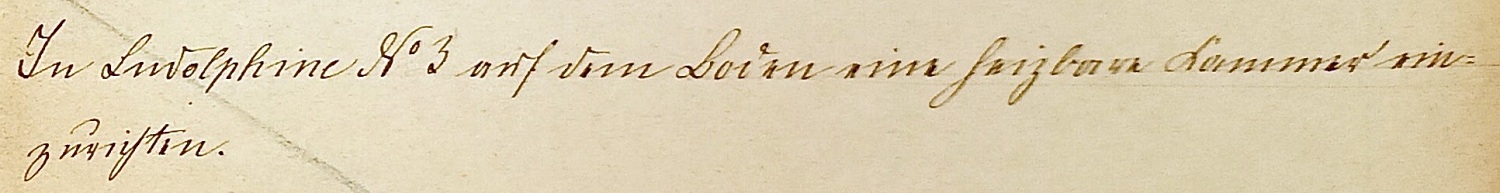 In Ludolphine No 3 auf dem Boden eine heizbare Kammer ein=
zurichten.